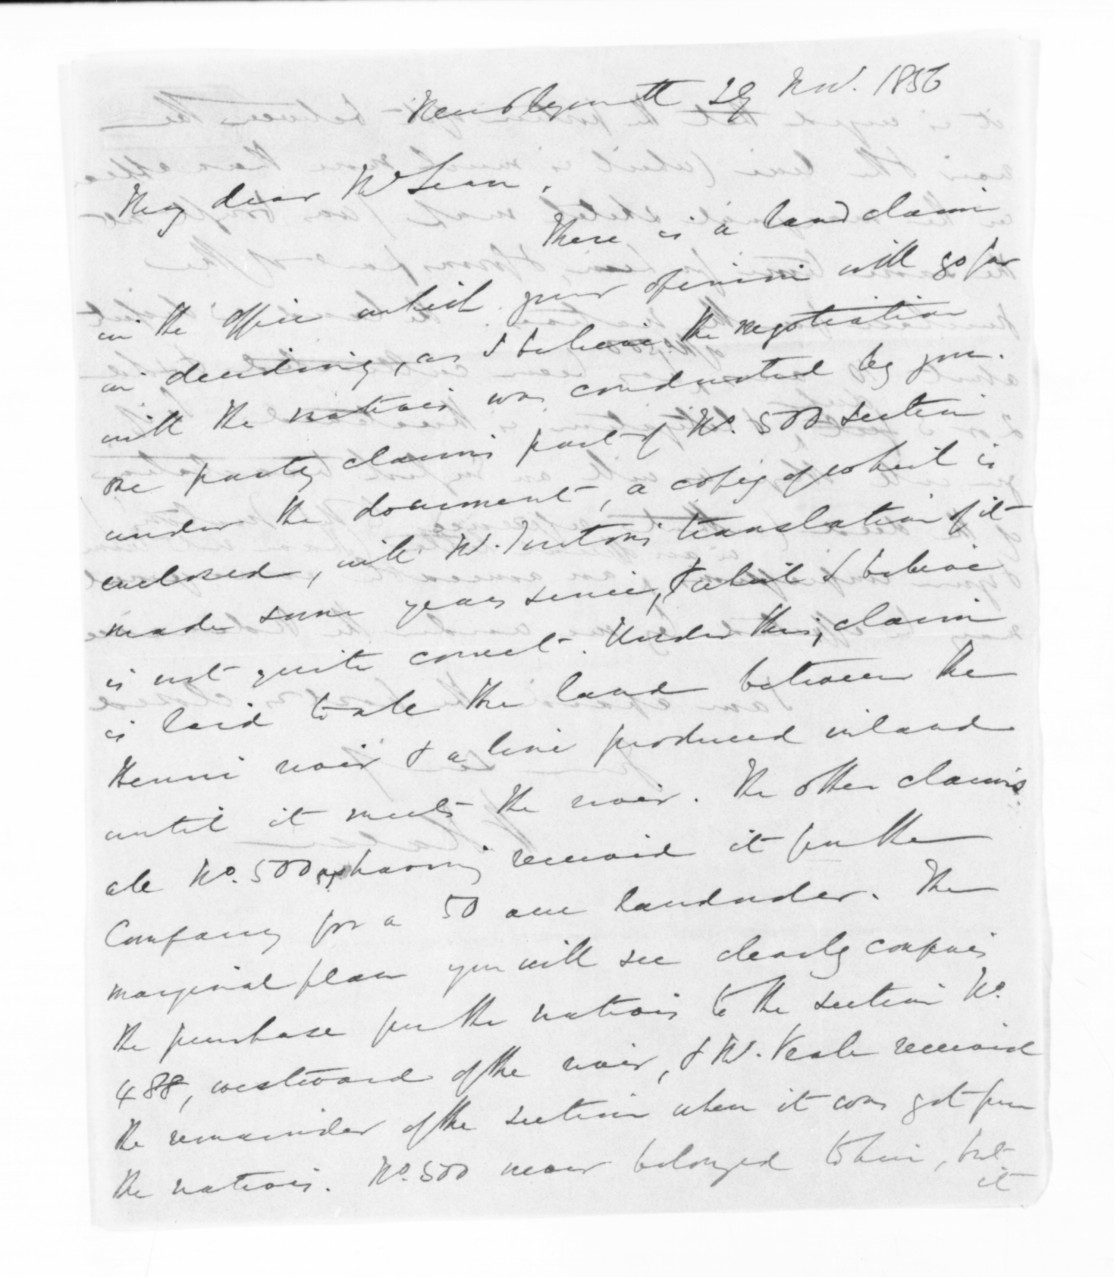 New Plymouth 29 Nov. 1856
My dear McLean,
There is a land claim
in the Office which your opinion will go far
in deciding, as I believe the negotiation
with the natives was conducted by you.
One party claims part of No. 500 section
under the document, a copy of which is
enclosed, with Mr. Turton's translation of it
made some years since, & which I believe
is not quite correct. Under this, claim
is laid to all the land between the
Henui river & a line produced inland
until it meets the river. The other claims
all No. 500, having received it from the
Company for a 50 acre landorder. The
marginal plan you will see clearly confines
the purchase from the natives to the section No.
488, westward of the river, & Mr. Veale received
the remainder of the section when it was got from
the natives. No. 500 never belonged to him, but
it